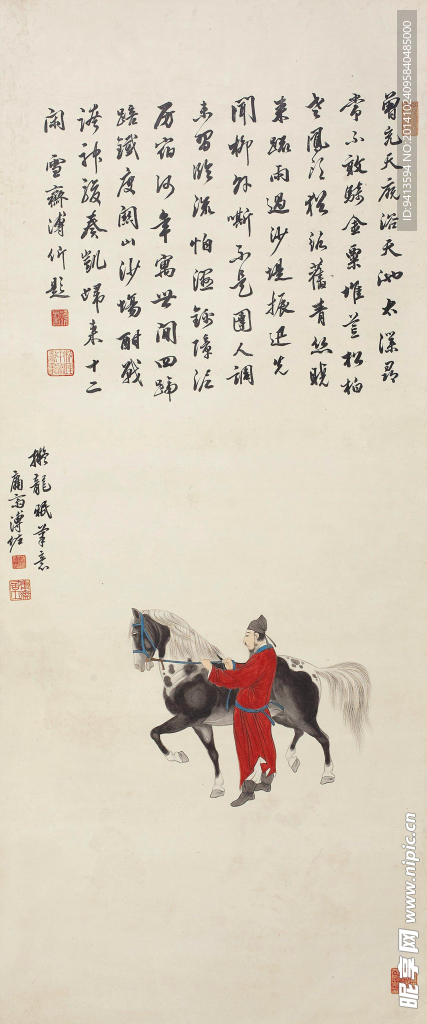 曾充天廄浴天池太液尋
常不敢騎金粟堆空松柏
老鳳頭猶絡舊青絲曉
來踈雨過沙堤振迅先
聞柳外嘶不是圉人調
未習臨流怕濕錦障泥
房宿何年寓世間四蹄
踣鐵度關山沙場酣戰
誇神駿奏凱歸來十二
閑 雪齋溥伒題
擬龍眠筆意
庸齋溥佐
ID:9413594 NO:20141024095840485000
昵享网 www.nipic.cn